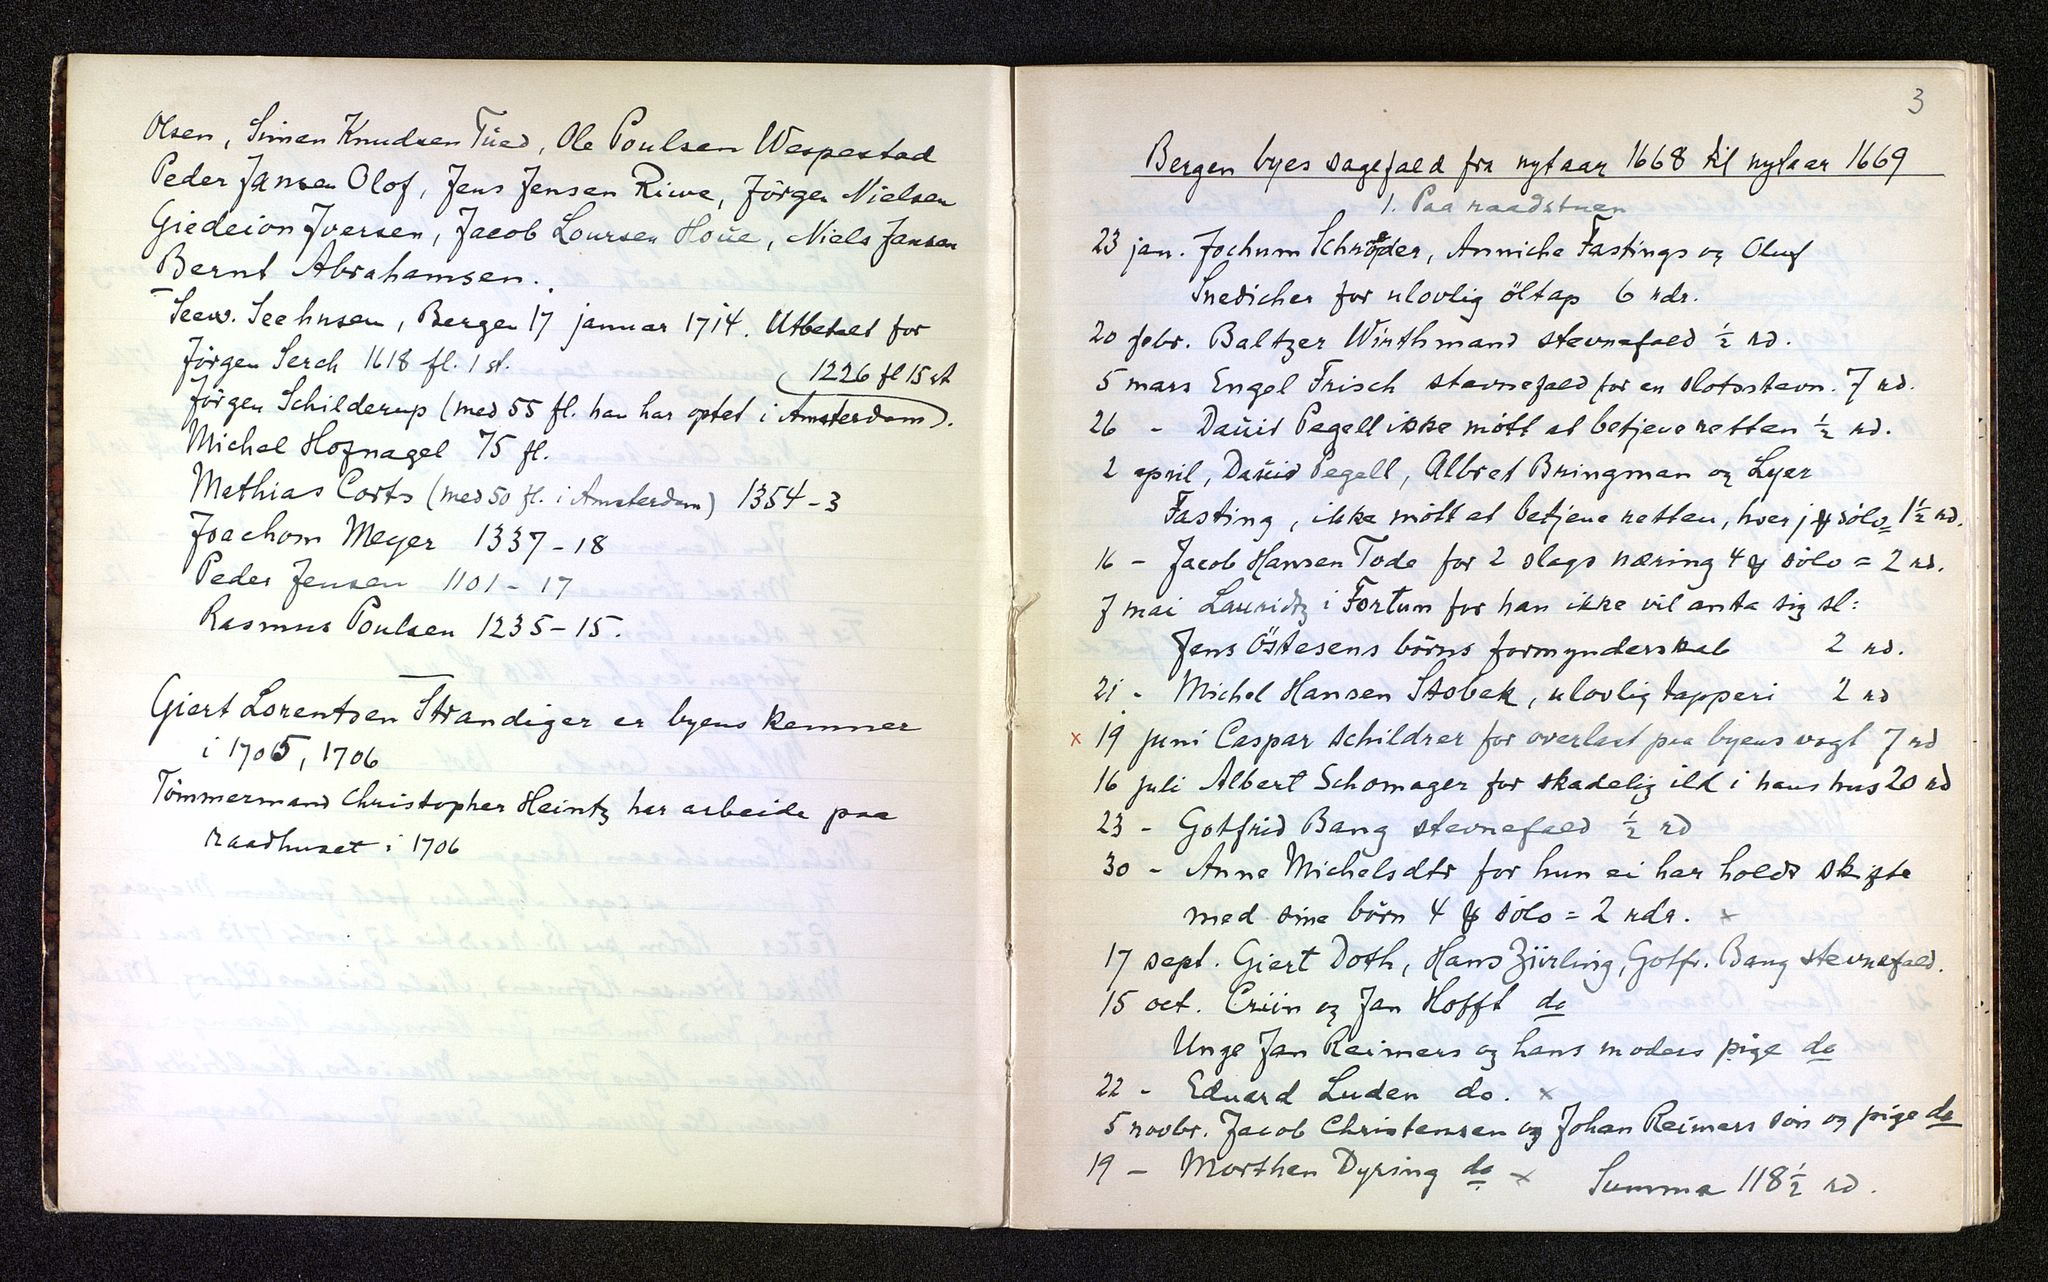 Olsen, Simen Knudsen Tüed, Ole Poulsen Wespestad
Peder Jansen Olof, Jens Jensen Riwe, Jörgen Nielsen
Giedeion Iversen, Jacob Loursen Hoüe, Niels Jansen
Bernt Abrahamsen.
Seew. Seehusen, Bergen 17 januar 1714. Utbetalt for
Jörgen Serch 1618 fl. 1 st.
(1226 fl 15 st
Jörgen Schilderup (med 55 fl. han har optet i Amsterdam).
Michel Hofnagel 75 fl.
Mathias Corts (med 50 fl. i Amsterdam) 1354-3
Joachom Meyer 1337-18
Peder Jensen 1101-17
Rasmus Poulsen 1235-15.
Giert Lorentsen Strandiger er byens kemner
i 1705, 1706
Tömmermand Christopher Heintz har arbeide paa
raadhuset i 1706
3
Bergen byes sagefald fra nytaar 1668 til nytaar 1669
1. Paa raadstuen
23 jan. Jochum Schrøder, Anniche Fastings og Oluf
Snedicher for ulovlig öltap 6 rdr.
20 febr. Baltzer Wirthmand stevnefald ½ rd.
5 mars Engel Frisch stevnefald for en slotsstevn. 7 rd.
26 - Daüid Pegell ikke mött at betjene retten ½ rd.
2 april, Daüid Pegell, Albret Bringman og Lyer
Fasting, ikke mött at betjene retten, hver sölv 1½ rd.
16 - Jacob Hansen Tode for 2 slags næring 4 sölv = 2 rd.
7 mai Lauridtz i Fortun for han ikke vil anta sig sl:
Jens Östesens börns formynderskab 2 rd.
21 - Michel Hansen Stobek, ulovlig tapperi 2 rd
x 19 juni Caspar schildrer for overlast paa byens vogt 7 rd
16 juli Albert Schomager for skadelig ild i hans hus 20 rd
23 - Gotfrid Bang stevnefald ½ rd
30 - Anne Michelsdtr for hun ei har holdt skifte
med sine börn 4 sölv = 2 rdr. x
17 sept. Giert Doth, Hans Zürling, Gotfr. Bang stevnefald.
15 oct. Criin og Jan Hofft do
Unge Jan Reimers og hans moders pige do
22 - Eduard Luden do. x
5 novbr. Jacob Christensen og Johan Reimers sön og pige do
19 - Morthen Dyring do x Summa 118½ rd.